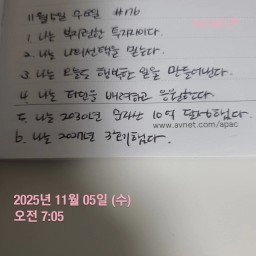 11월 5일 수요일 #176
1. 나는 부지런한 투자자이다.
2. 나는 나의 선택을 믿는다.
3. 나는 오늘도 행복한 일을 만들어낸다.
4. 나는 타인을 배려하고 응원한다.
5. 나는 2030년 순자산 10억 달성했다.
www.avnet.com/apac
6. 나는 2027년 3호기 했다.
2025년 11월 05일 (수)
오전 7:05